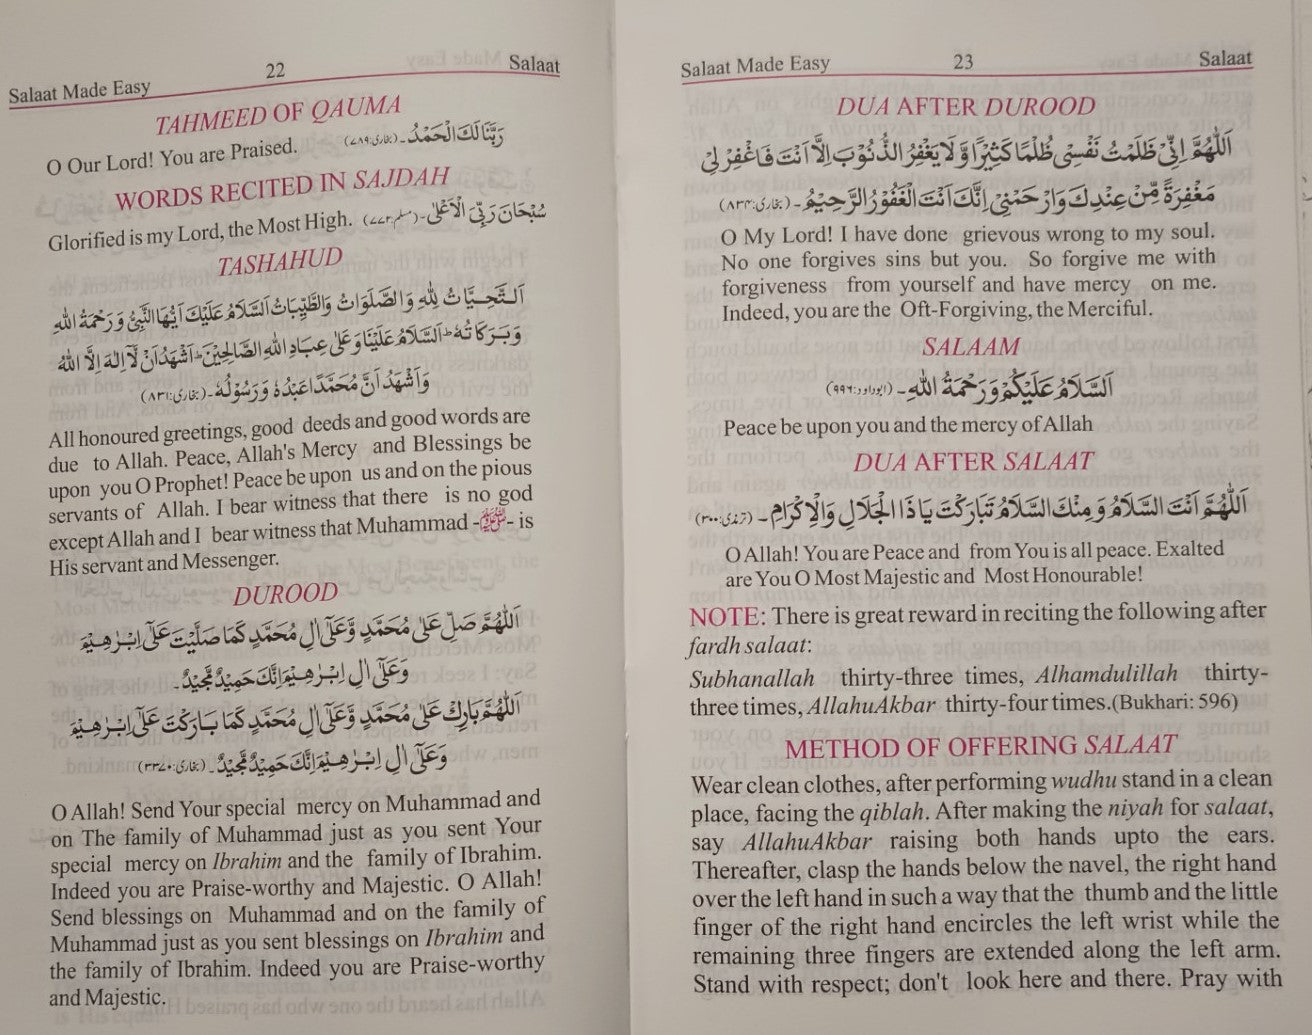 Salaat Made Easy 22 Salaat
TAHMEED OF QAUMA
O Our Lord! You are Praised. رَبَّنَا لَكَ الْحَمْدُ۔ (بخاری:۷۸۹)
WORDS RECITED IN SAJDAH
Glorified is my Lord, the Most High. سُبْحَانَ رَبِّيَ الْاَعْلٰى۔ (مسلم:۷۷۲)
TASHAHUD
اَلتَّحِيَّاتُ لِلّٰهِ وَالصَّلَوَاتُ وَالطَّيِّبَاتُ اَلسَّلَامُ عَلَيْكَ اَيُّهَا النَّبِيُّ وَرَحْمَةُ اللّٰهِ
وَبَرَكَاتُهٗ، اَلسَّلَامُ عَلَيْنَا وَعَلٰى عِبَادِ اللّٰهِ الصَّالِحِيْنَ، اَشْهَدُ اَنْ لَّا اِلٰهَ اِلَّا اللّٰهُ
وَاَشْهَدُ اَنَّ مُحَمَّدًا عَبْدُهٗ وَرَسُوْلُهٗ۔ (بخاری:۸۳۱)
All honoured greetings, good deeds and good words are
due to Allah. Peace, Allah's Mercy and Blessings be
upon you O Prophet! Peace be upon us and on the pious
servants of Allah. I bear witness that there is no god
except Allah and I bear witness that Muhammad -ﷺ- is
His servant and Messenger.
DUROOD
اَللّٰهُمَّ صَلِّ عَلٰى مُحَمَّدٍ وَّعَلٰٓى اٰلِ مُحَمَّدٍ كَمَا صَلَّيْتَ عَلٰٓى اِبْرٰهِيْمَ
وَعَلٰٓى اٰلِ اِبْرٰهِيْمَ اِنَّكَ حَمِيْدٌ مَّجِيْدٌ۔
اَللّٰهُمَّ بَارِكْ عَلٰى مُحَمَّدٍ وَّعَلٰٓى اٰلِ مُحَمَّدٍ كَمَا بَارَكْتَ عَلٰٓى اِبْرٰهِيْمَ
وَعَلٰٓى اٰلِ اِبْرٰهِيْمَ اِنَّكَ حَمِيْدٌ مَّجِيْدٌ۔ (بخاری:۳۳۷۰)
O Allah! Send Your special mercy on Muhammad and
on The family of Muhammad just as you sent Your
special mercy on Ibrahim and the family of Ibrahim.
Indeed you are Praise-worthy and Majestic. O Allah!
Send blessings on Muhammad and on the family of
Muhammad just as you sent blessings on Ibrahim and
the family of Ibrahim. Indeed you are Praise-worthy
and Majestic.
Salaat Made Easy 23 Salaat
DUA AFTER DUROOD
اَللّٰهُمَّ اِنِّيْ ظَلَمْتُ نَفْسِيْ ظُلْمًا كَثِيْرًا وَّلَا يَغْفِرُ الذُّنُوْبَ اِلَّا اَنْتَ فَاغْفِرْ لِيْ
مَغْفِرَةً مِّنْ عِنْدِكَ وَارْحَمْنِيْ اِنَّكَ اَنْتَ الْغَفُوْرُ الرَّحِيْمُ۔ (بخاری:۸۳۴)
O My Lord! I have done grievous wrong to my soul.
No one forgives sins but you. So forgive me with
forgiveness from yourself and have mercy on me.
Indeed, you are the Oft-Forgiving, the Merciful.
SALAAM
اَلسَّلَامُ عَلَيْكُمْ وَرَحْمَةُ اللّٰهِ۔ (ابوداود:۹۹۶)
Peace be upon you and the mercy of Allah
DUA AFTER SALAAT
اَللّٰهُمَّ اَنْتَ السَّلَامُ وَمِنْكَ السَّلَامُ تَبَارَكْتَ يَا ذَا الْجَلَالِ وَالْاِكْرَامِ۔ (ترمذی:۳۰۰)
O Allah! You are Peace and from You is all peace. Exalted
are You O Most Majestic and Most Honourable!
NOTE: There is great reward in reciting the following after
fardh salaat:
Subhanallah thirty-three times, Alhamdulillah thirty-
three times, AllahuAkbar thirty-four times.(Bukhari: 596)
METHOD OF OFFERING SALAAT
Wear clean clothes, after performing wudhu stand in a clean
place, facing the qiblah. After making the niyah for salaat,
say AllahuAkbar raising both hands upto the ears.
Thereafter, clasp the hands below the navel, the right hand
over the left hand in such a way that the thumb and the little
finger of the right hand encircles the left wrist while the
remaining three fingers are extended along the left arm.
Stand with respect; don't look here and there. Pray with